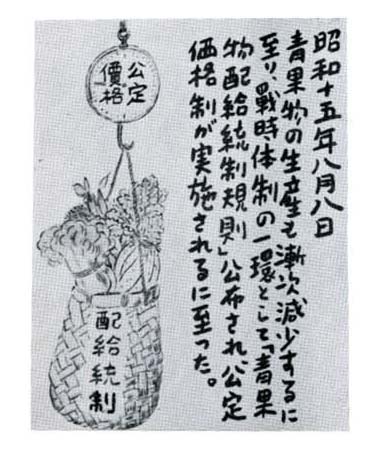 昭和十五年八月八日
青果物の生産も漸次減少するに
至り、戰時体制の一環として「青果
物配給統制規則」公布され、公定
価格制が実施されるに至った。
公定
價格
配給統制